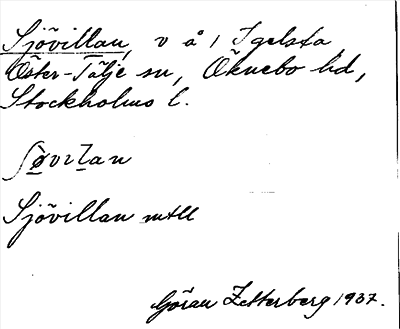 Sjövillan, v å 1 Igelsta
Öster-Tälje sn, Öknebo hd,
Stockholms l.
ʃøvılan
Sjövillan mtll
Göran Zetterberg 1937.